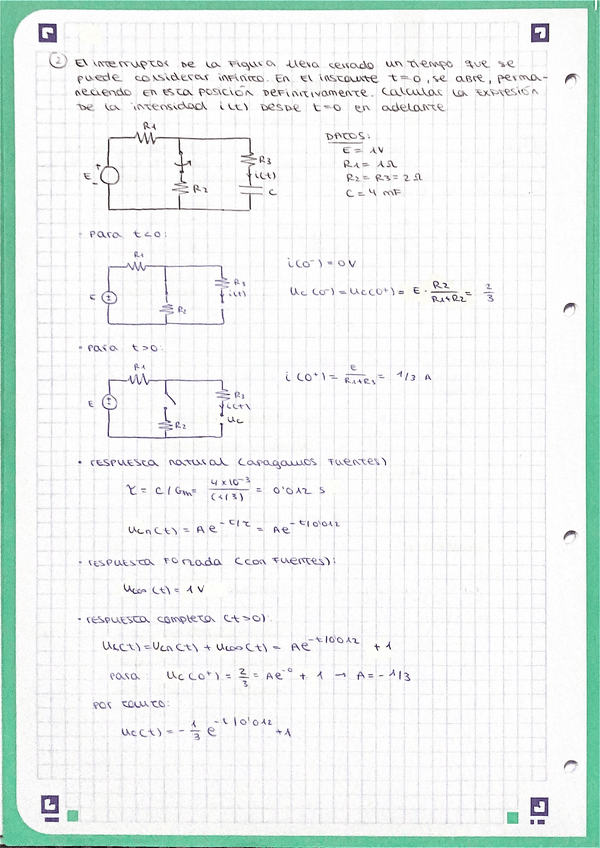 2 El interruptor de la figura lleva cerrado un tiempo que se
puede considerar infinito. En el instante t=0, se abre, perma-
neciendo en esta posición definitivamente. Calcular la expresión
de la intensidad i(t) desde t=0 en adelante
R1
DATOS:
E = 1V
R1 = 1Ω
R2 = R3 = 2Ω
C = 4 mF
E
+
-
R2
R3
i(t)
C
· para t<0:
R1
E
R2
R3
i(t)
i(0⁻) = 0V
Uc(0⁻) = Uc(0⁺) = E · R2/(R1+R2) = 2/3
· para t>0:
R1
E
R2
R3
i(t)
Uc
i(0⁺) = E/(R1+R3) = 1/3 A
· respuesta natural (apagamos fuentes)
τ = C/Gm = 4×10⁻³/(1/3) = 0'012 s
Ucn(t) = Ae^(-t/τ) = Ae^(-t/0'012)
· respuesta forzada (con fuentes):
Uc∞(t) = 1V
· respuesta completa (t>0):
Uc(t) = Ucn(t) + Uc∞(t) = Ae^(-t/0'012) + 1
para Uc(0⁺) = 2/3 = Ae^(-0) + 1 → A = -1/3
por tanto:
Uc(t) = -1/3 e^(-t/0'012) + 1